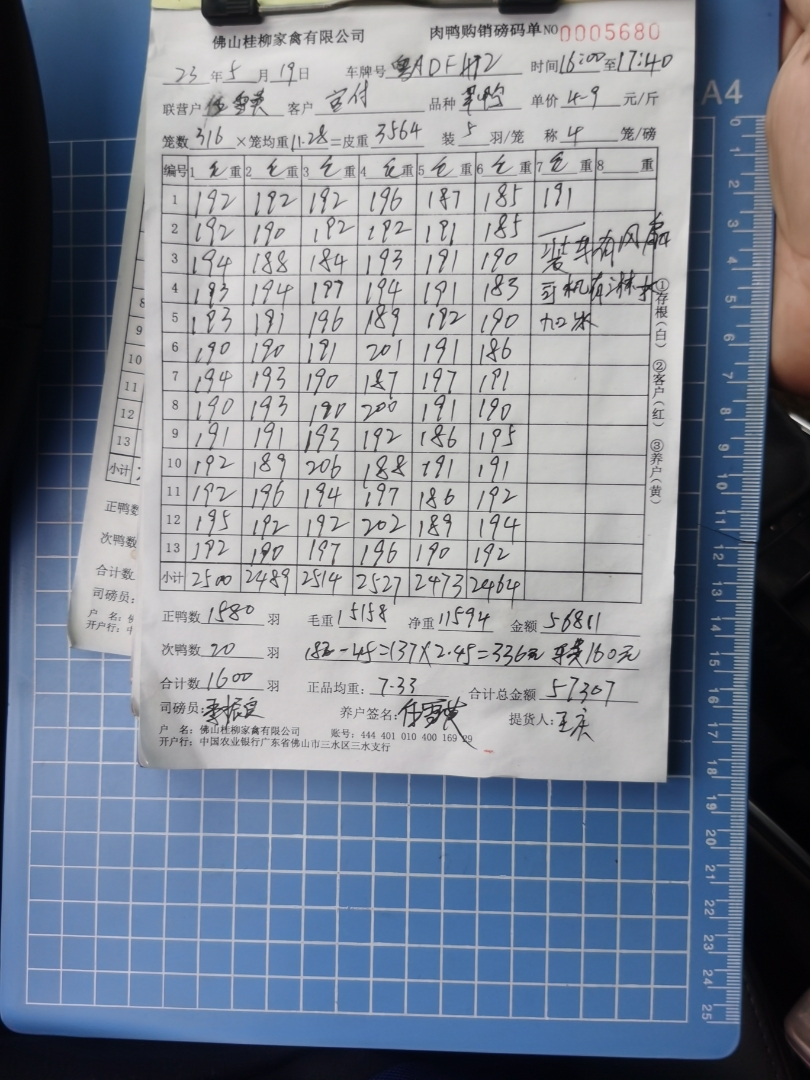 佛山桂柳家禽有限公司 肉鸭购销磅码单 NO 0005680
23 年 5 月 19 日 车牌号 粤ADF 时间 16:00 至 17:40
联营户 客户 宫付 品种 单价 4.9 元/斤
笼数 316 ×笼均重 11.28 =皮重 3564 装 5 羽/笼 称 4 笼/磅
编号 1 毛 重 2 毛 重 3 毛 重 4 毛 重 5 毛 重 6 毛 重 7 毛 重 8 重
1 192 192 192 196 187 185 191
2 192 190 192 192 191 185 一
3 194 188 184 193 191 190 装车有风扇
4 193 194 197 194 191 183 司机有淋水
5 193 191 196 189 192 190 加冰
6 190 190 191 201 191 186
7 194 193 190 187 197 191
8 190 193 190 200 191 190
9 191 191 193 192 186 195
10 192 189 206 188 191 191
11 192 196 194 197 186 192
12 195 192 192 202 189 194
13 192 190 197 196 190 192
小计 2500 2489 2514 2527 2473 2464
①存根(白) ②客户(红) ③养户(黄)
正鸭数 1580 羽 毛重 15158 净重 11594 金额 56811
次鸭数 20 羽 182-45=137×2.45=336元 160元
合计数 1600 羽 正品均重: 7.33 合计总金额 57307
司磅员: 养户签名: 提货人:
户 名: 佛山桂柳家禽有限公司 账号: 444 401 010 400 169 29
开户行: 中国农业银行广东省佛山市三水区三水支行
8
9
10
11
12
13
小计
正鸭数
次鸭数
合计数
司磅员:
户 名:
开户行: 中
A4
0
1
2
3
4
5
6
7
8
9
10
11
12
13
14
15
16
17
18
19
20
21
22
23
24
25